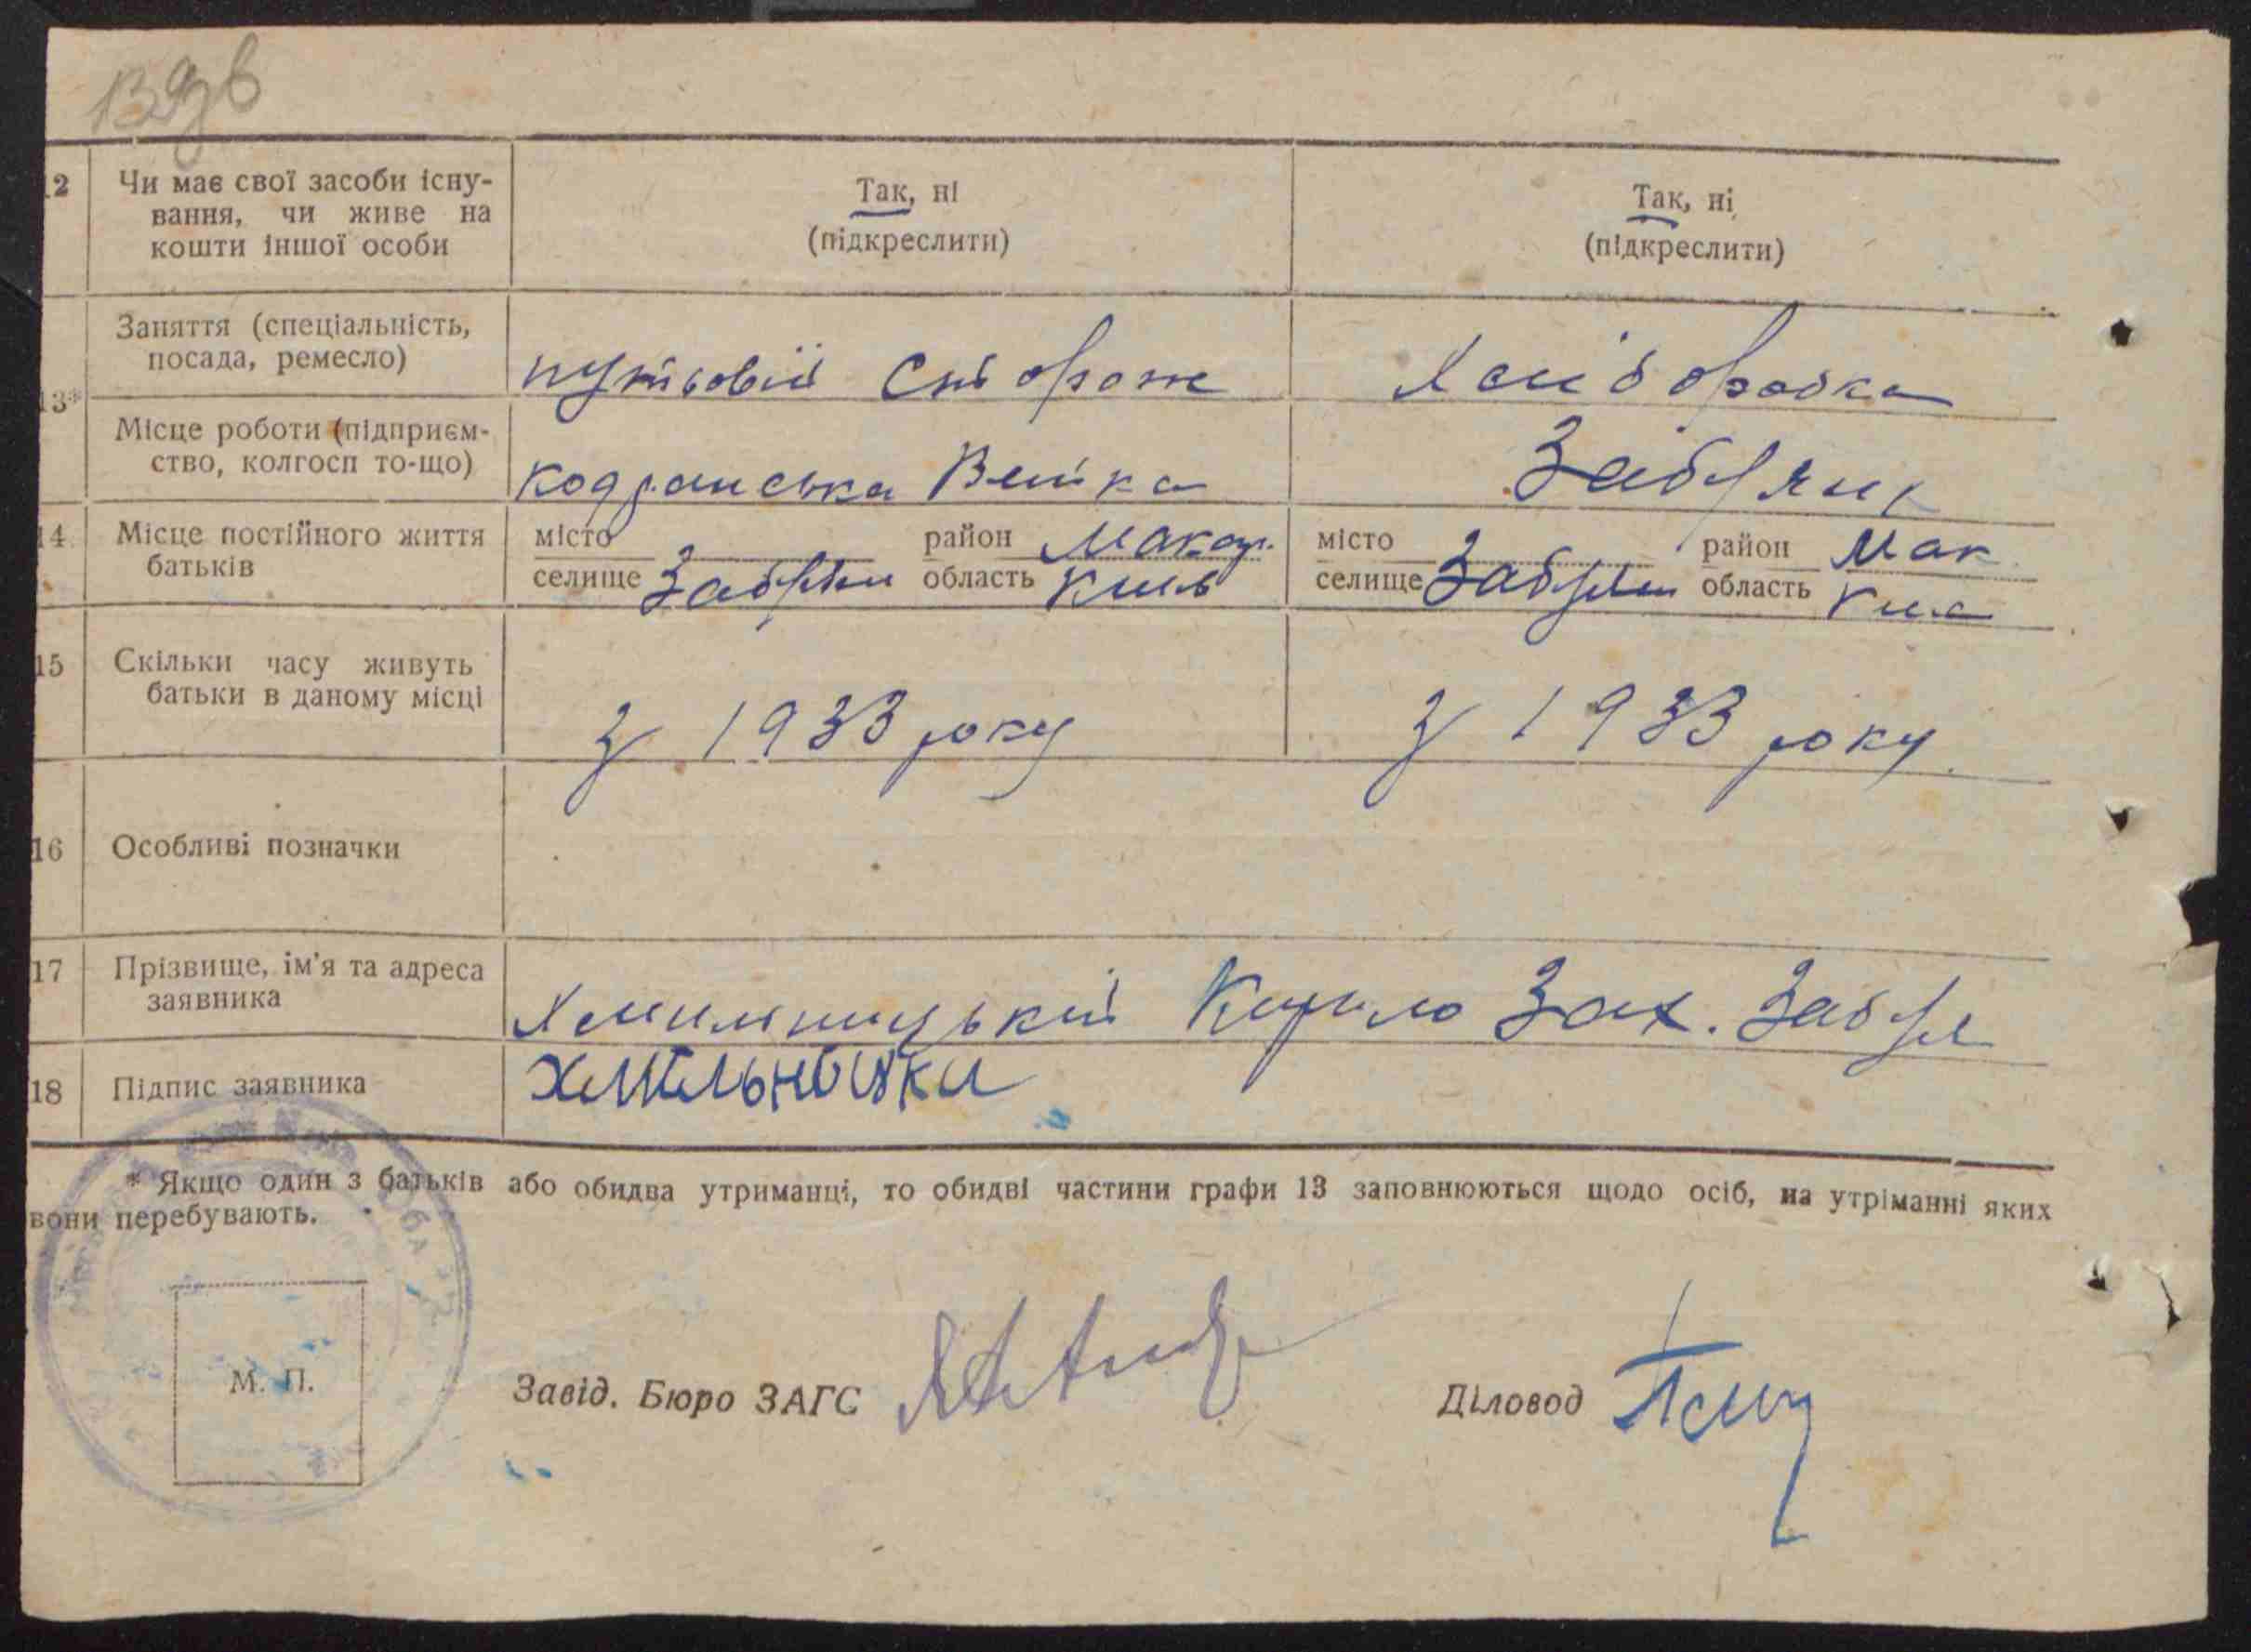 139зв
12 Чи має свої засоби існу-
вання, чи живе на
кошти іншої особи
Так, ні
(підкреслити)
Так, ні
(підкреслити)
13* Заняття (спеціальність,
посада, ремесло)
путьовий сторож
Хліборобка
Місце роботи (підприєм-
ство, колгосп то-що)
кодранська Вітка
14 Місце постійного життя
батьків
місто
селище Забрян
район Макар.
область Київ
місто
селище Забрян
район Мак
область Киє
15 Скільки часу живуть
батьки в даному місці
з 1933 року
з 1933 року
16 Особливі позначки
17 Прізвище, ім'я та адреса
заявника
Хмильницький Кирило Зах. Забря
18 Підпис заявника
* Якщо один з батьків або обидва утриманці, то обидві частини графи 13 заповнюються щодо осіб, на утріманні яких
вони перебувають.
М. П.
Завід. Бюро ЗАГС
Діловод